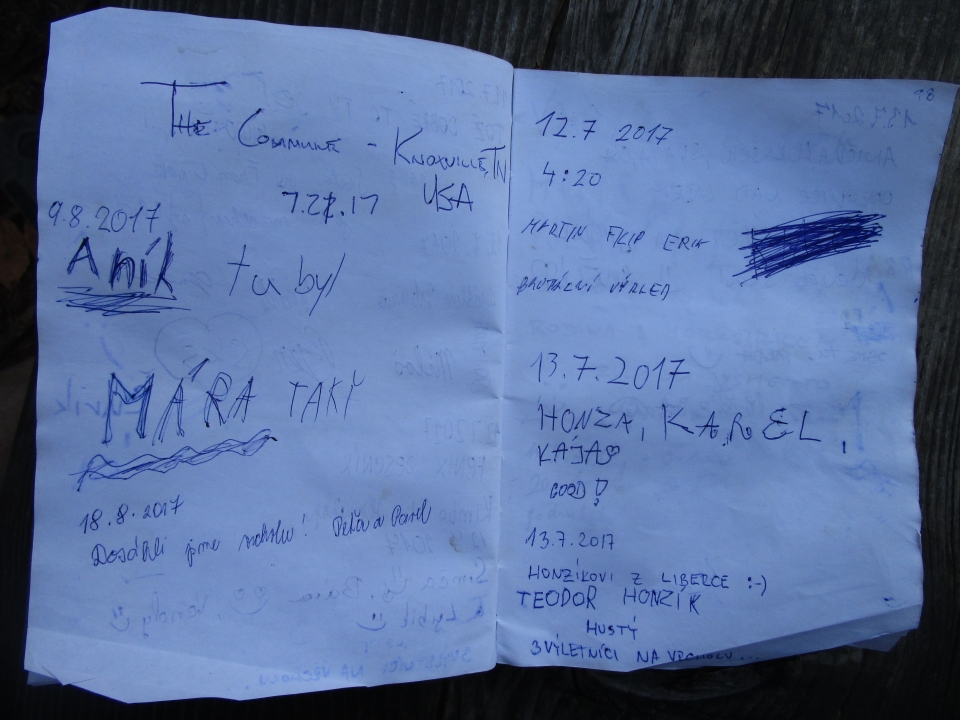 The Commune - Knoxville, TN
USA
7.21.17
9.8.2017
Aník tu byl
MÁRA TAKY
18.8.2017
Dosáhli jsme vrcholu! Péťa a Pavel
18
12.7 2017
4:20
MARTIN FILIP ERIK
BRUTÁLNÍ VÝHLED
13.7.2017
HONZA, KAREL,
KÁJA
GOOD!
13.7.2017
HONZÍKOVI Z LIBERCE :-)
TEODOR HONZÍK
HUSTÝ
3 VÝLETNÍCI NA VRCHOLU...